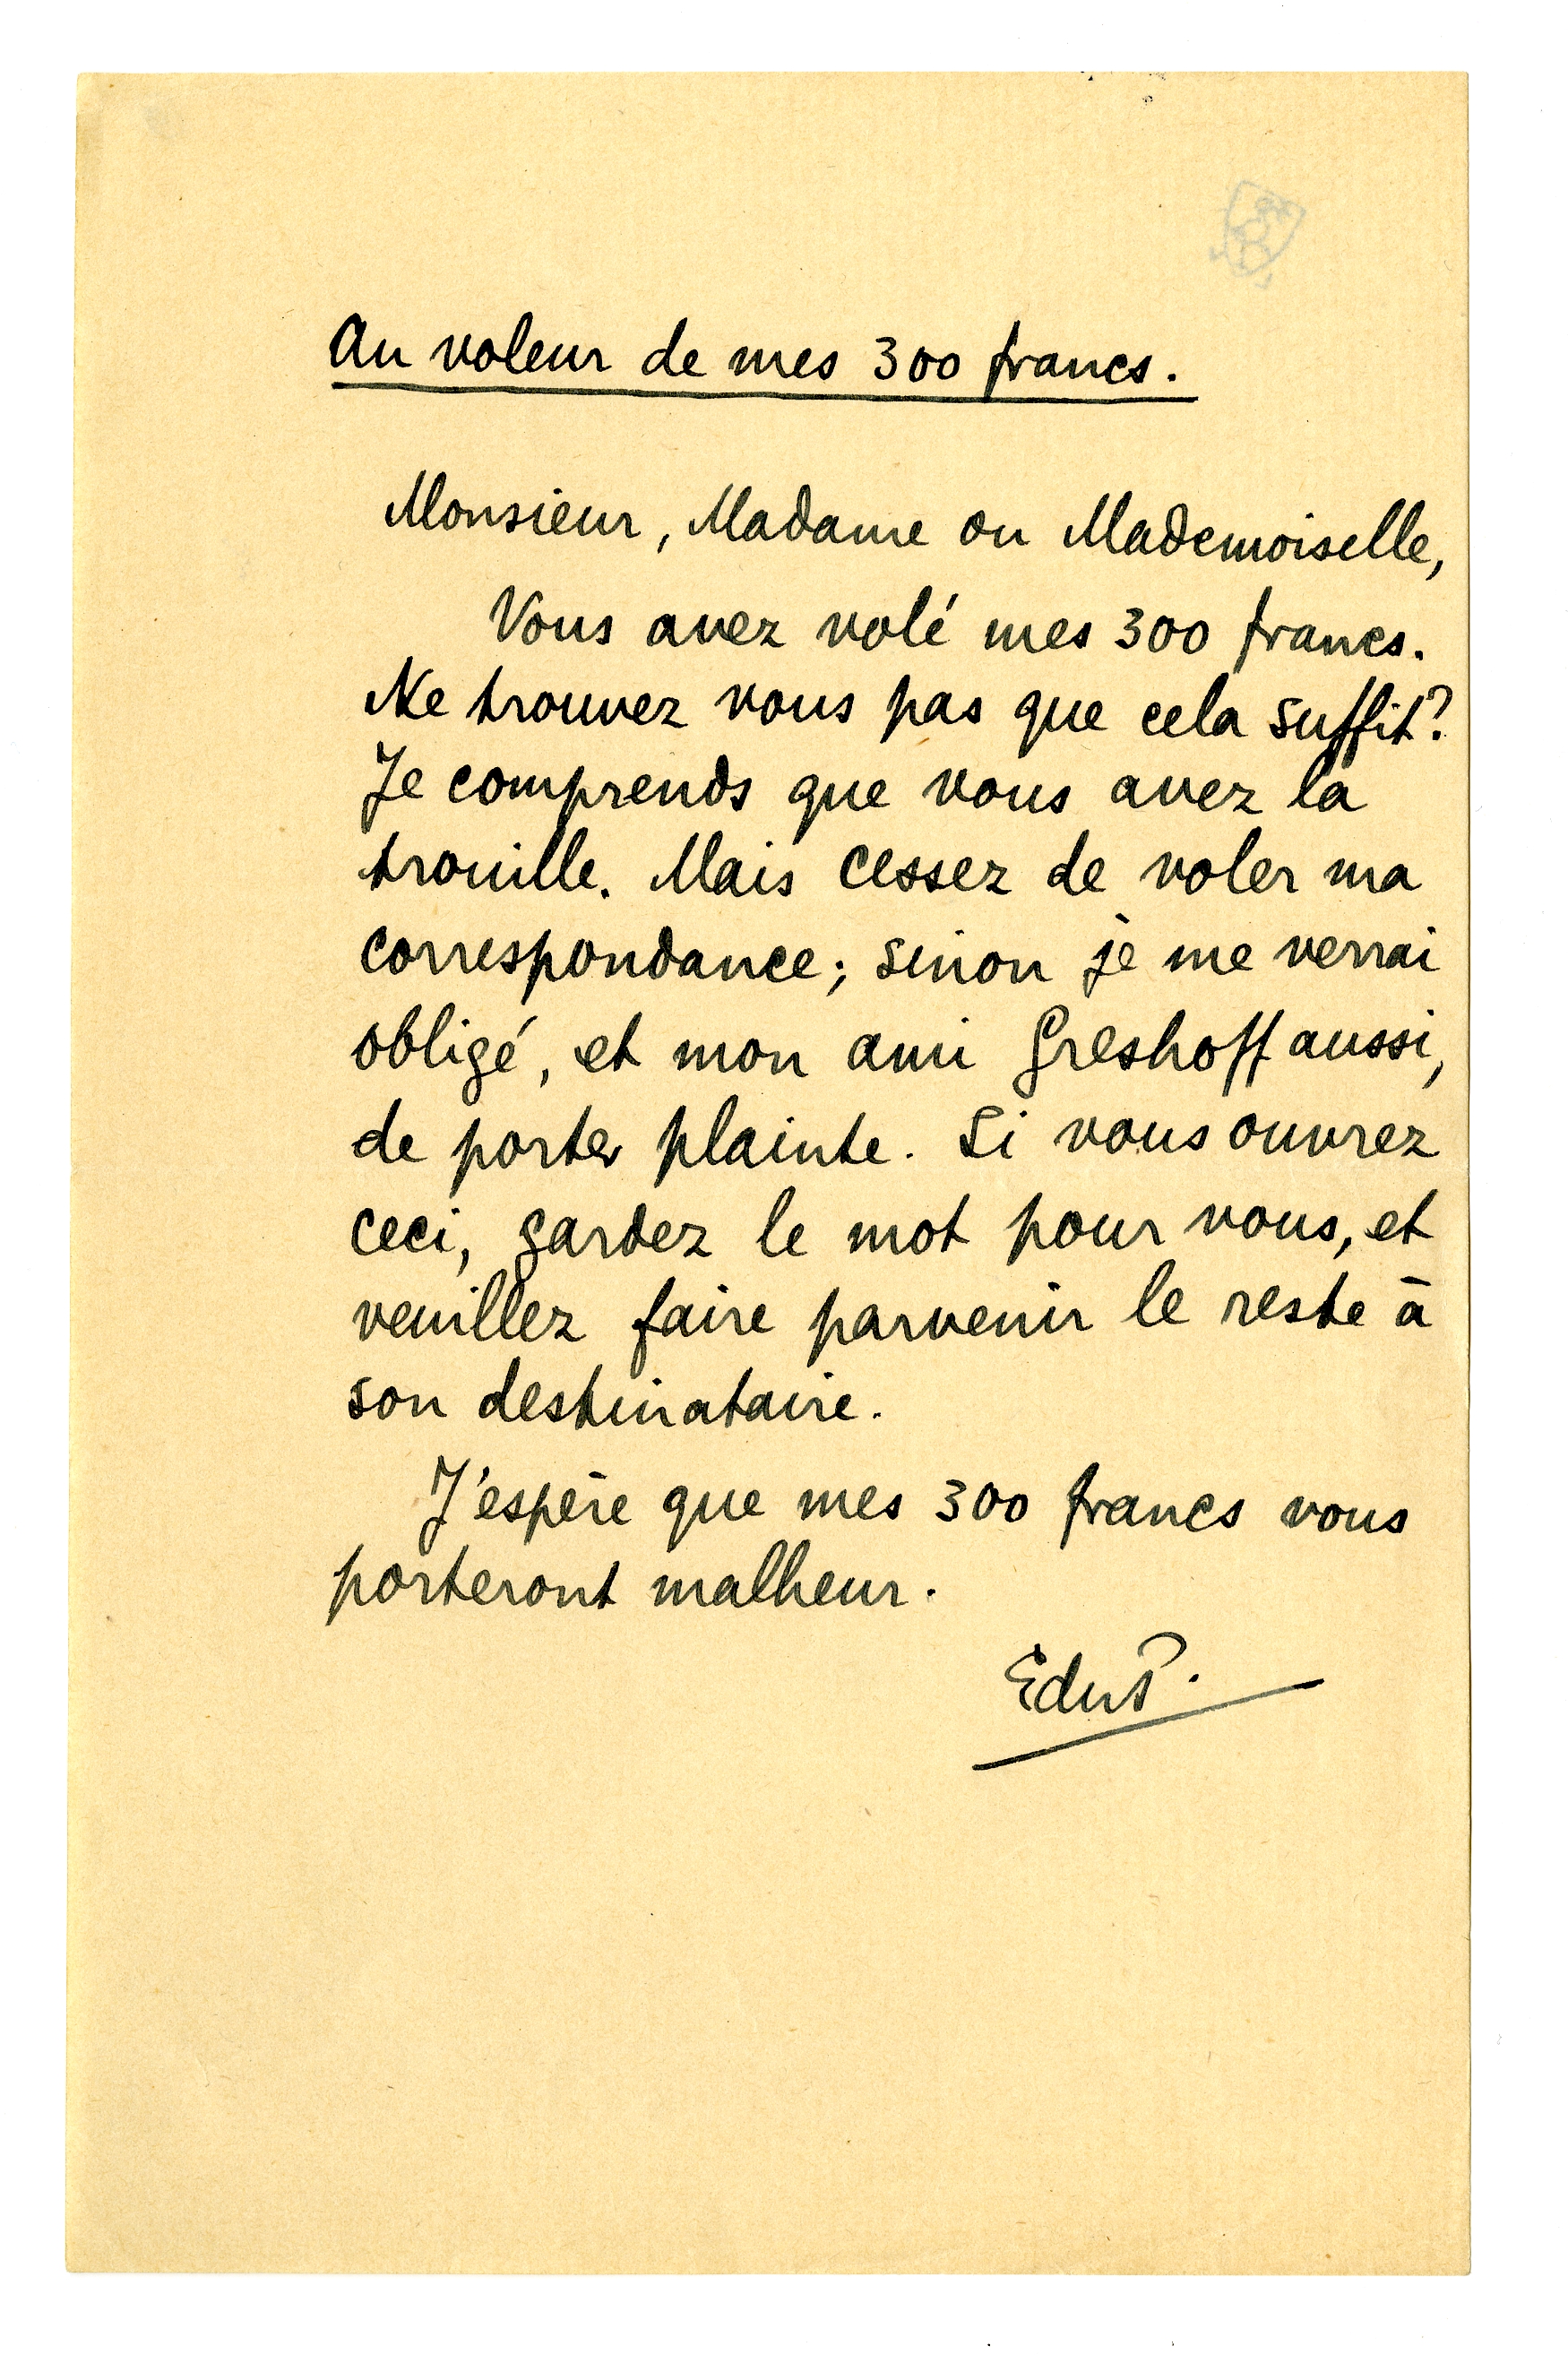 Au voleur de mes 300 francs.
Monsieur, Madame ou Mademoiselle,
Vous avez volé mes 300 francs.
Ne trouvez vous pas que cela suffit?
Je comprends que vous avez la
trouille. Mais cessez de voler ma
correspondance; sinon je me verrai
obligé, et mon ami Greshoff aussi,
de porter plainte. Si vous ouvrez
ceci, gardez le mot pour vous, et
veuillez faire parvenir le reste à
son destinataire.
J'espère que mes 300 francs vous
porteront malheur.
EduP.